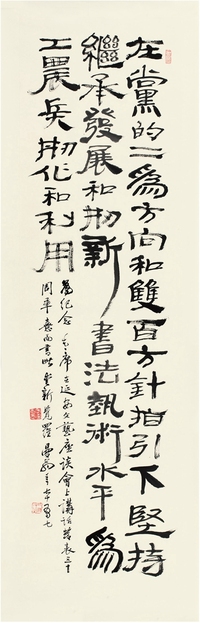 在黨的二爲方向和雙百方針指引下堅持
繼承發展和刱新書法藝術水平爲
工農兵刱作和利用
爲紀念毛主席在延安文藝座談會上講話發表三十
周年 書 新覺羅 七